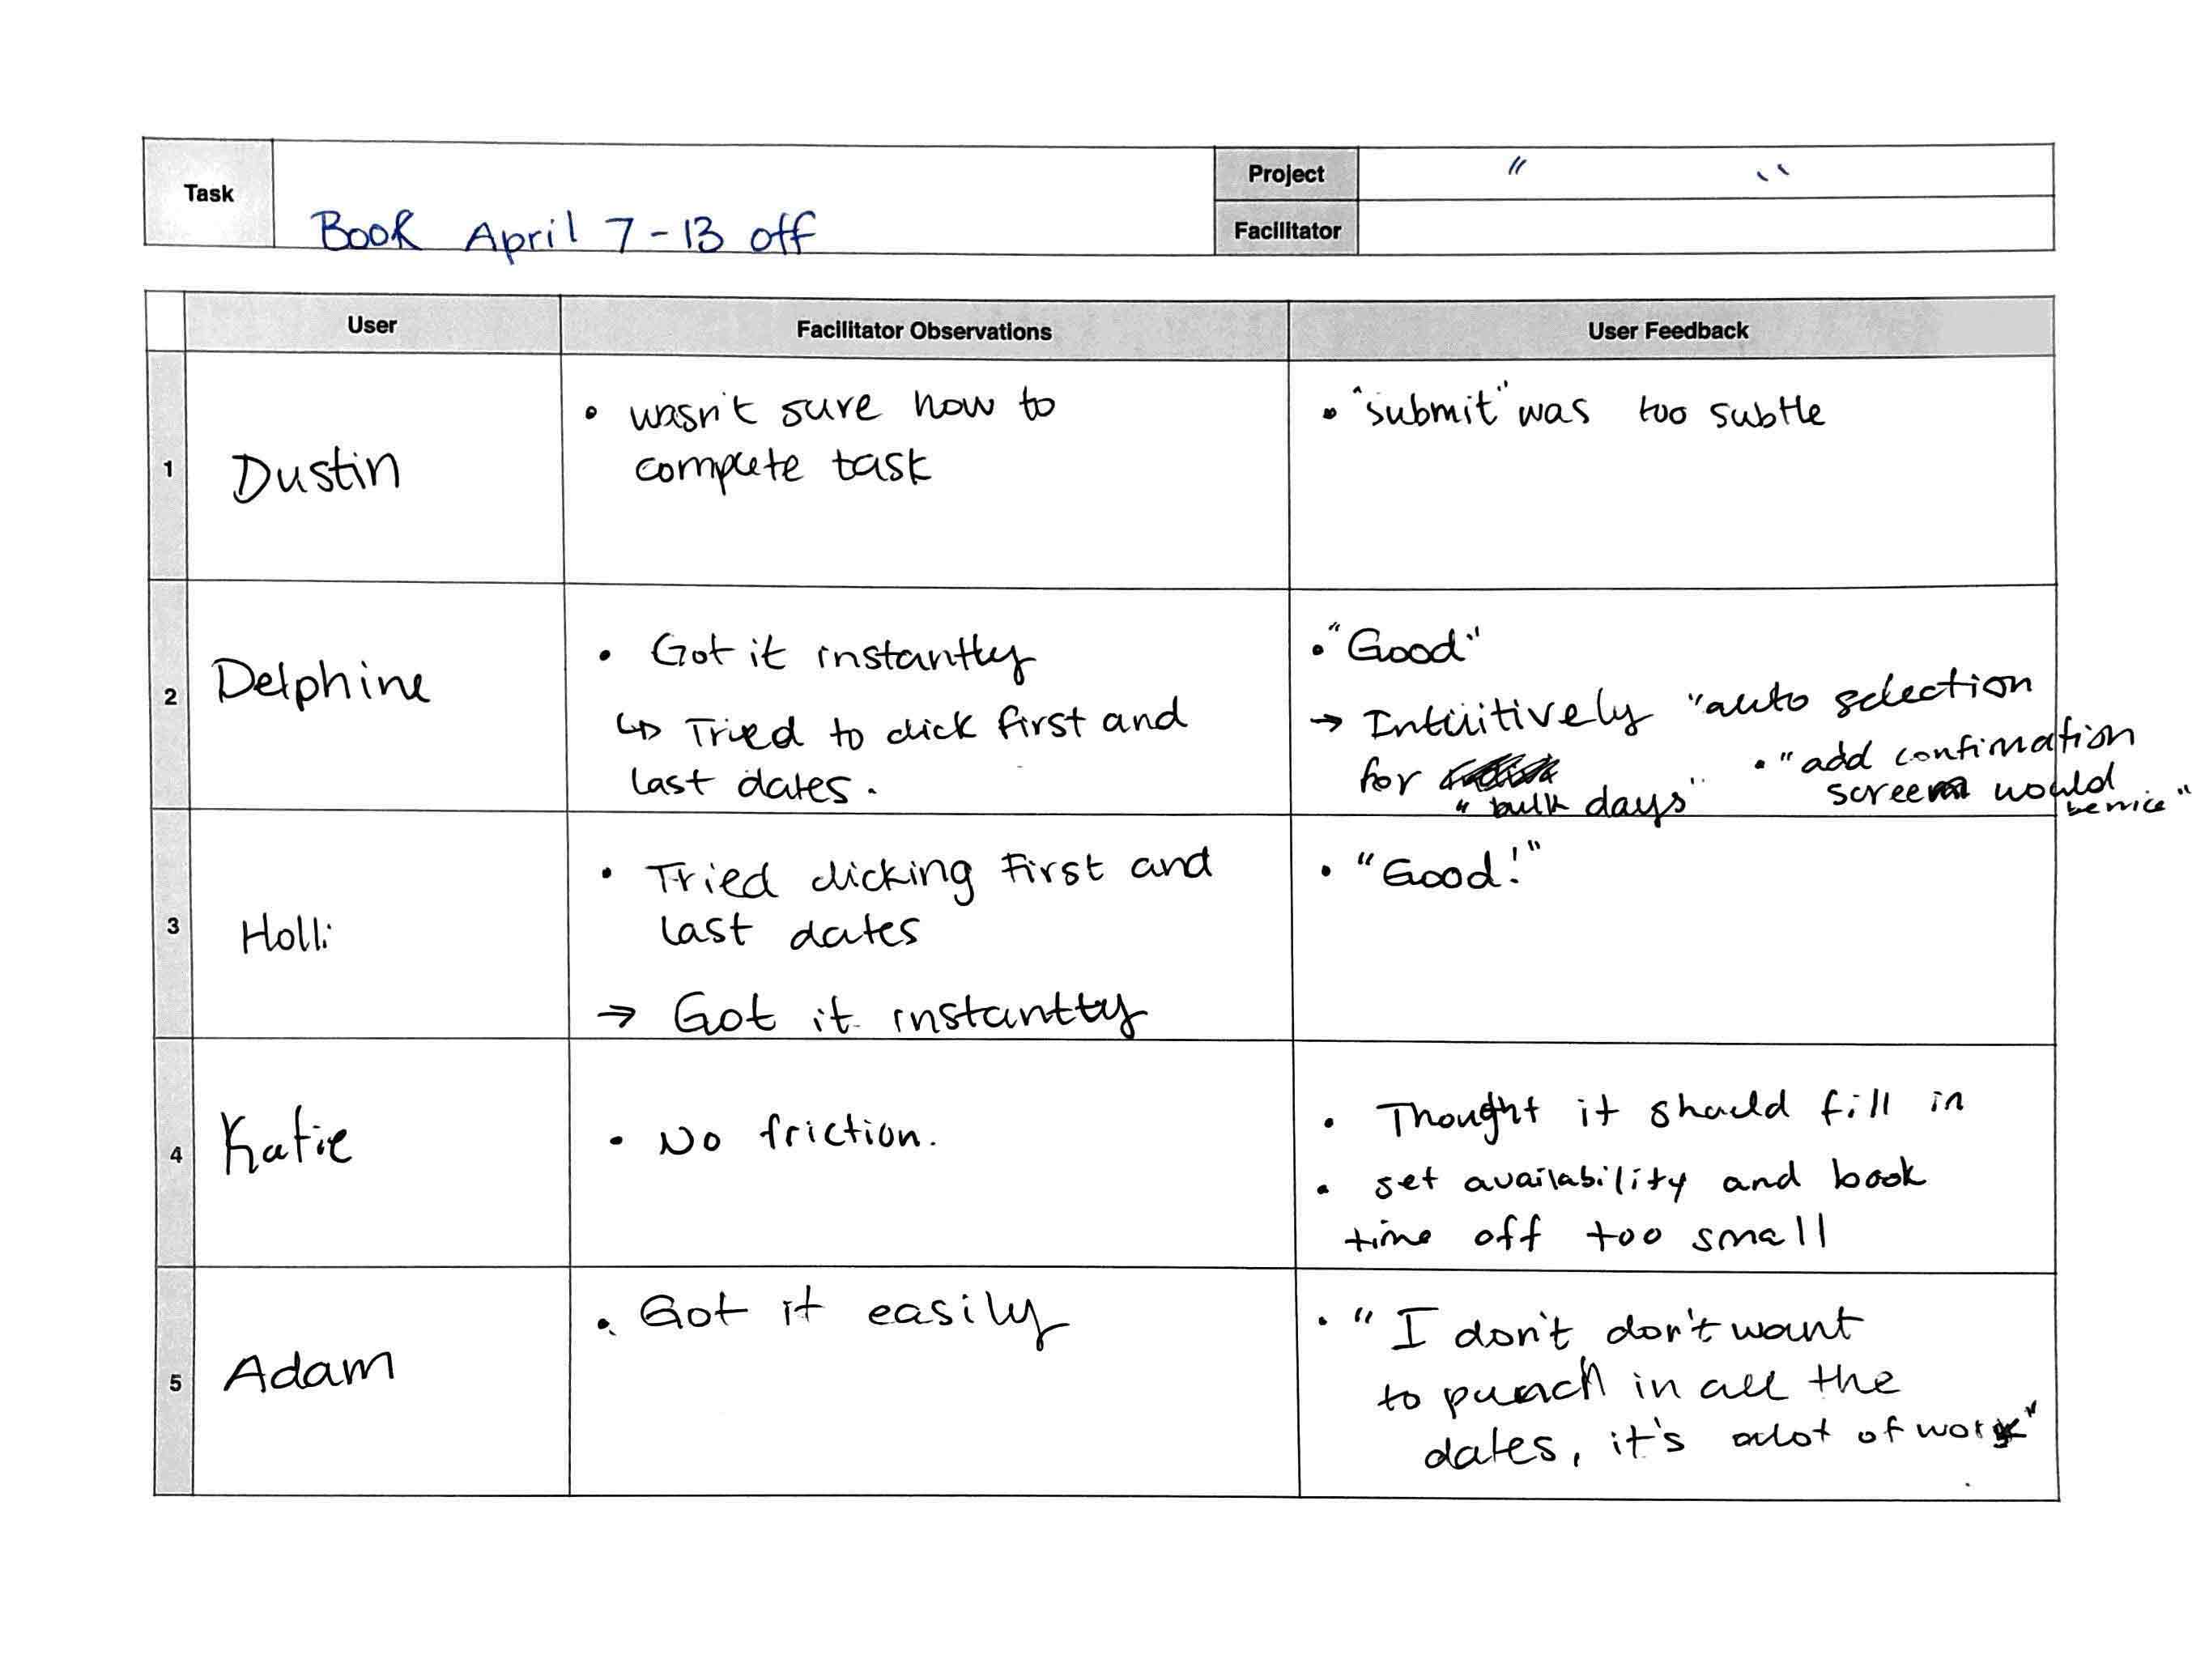 Task
Book April 7-13 off
Project
" "
Facilitator
User
Facilitator Observations
User Feedback
1
Dustin
• wasn't sure how to
complete task
• "submit" was too subtle
2
Delphine
• Got it instantly
↳ Tried to click first and
last dates.
• "Good"
→ Intuitively "auto selection
for
"bulk days"
• "add confirmation
screen would
be nice"
3
Holli
• Tried clicking first and
last dates
→ Got it instantly
• "Good!"
4
Katie
• No friction.
• Thought it should fill in
• set availability and book
time off too small
5
Adam
• Got it easily
• "I don't don't want
to punch in all the
dates, it's alot of work"